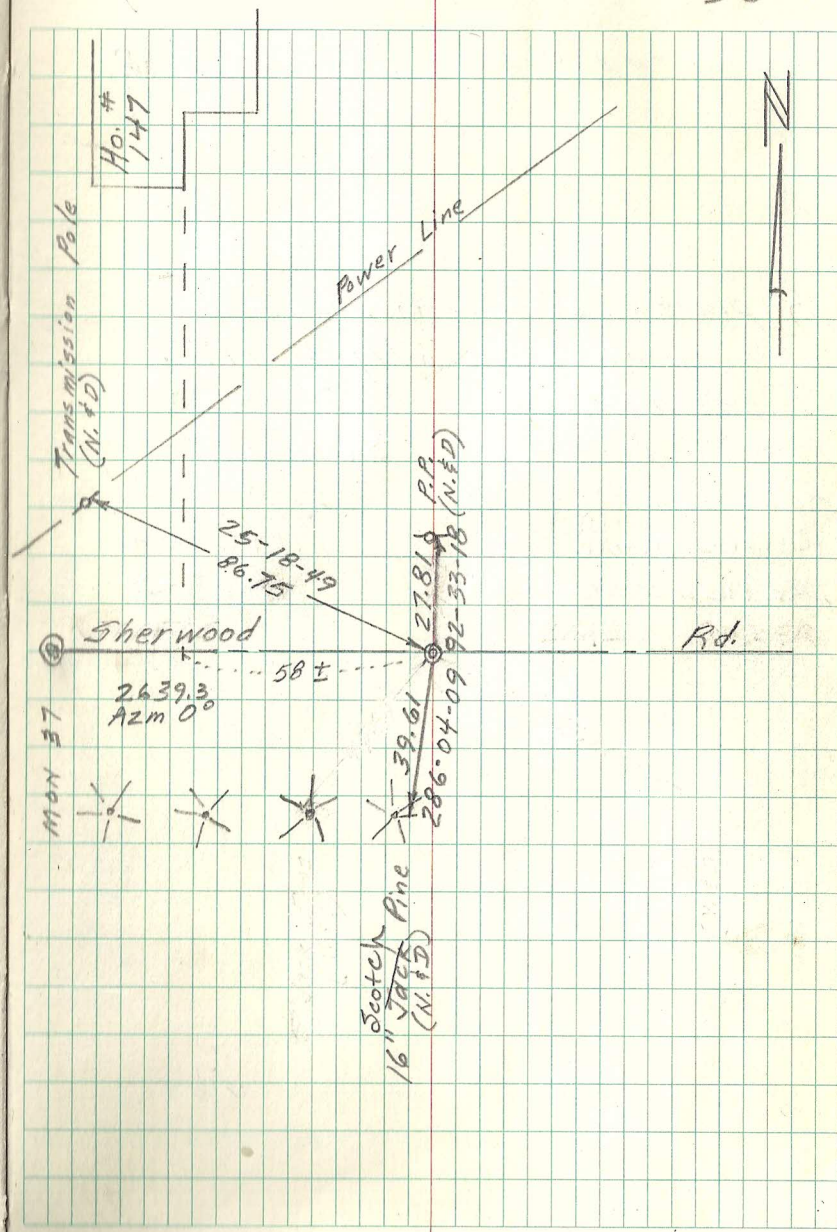 Ho. #
147
N
Transmission Pole
(N. & D)
Power Line
25-18-49
86.75
27.81 P.P.
92-33-18 (N. & D)
Sherwood Rd.
58 ±
2639.3
Azm 0°
MON 37
39.61
286-04-09
Scotch
16" Jack Pine
(N. & D)